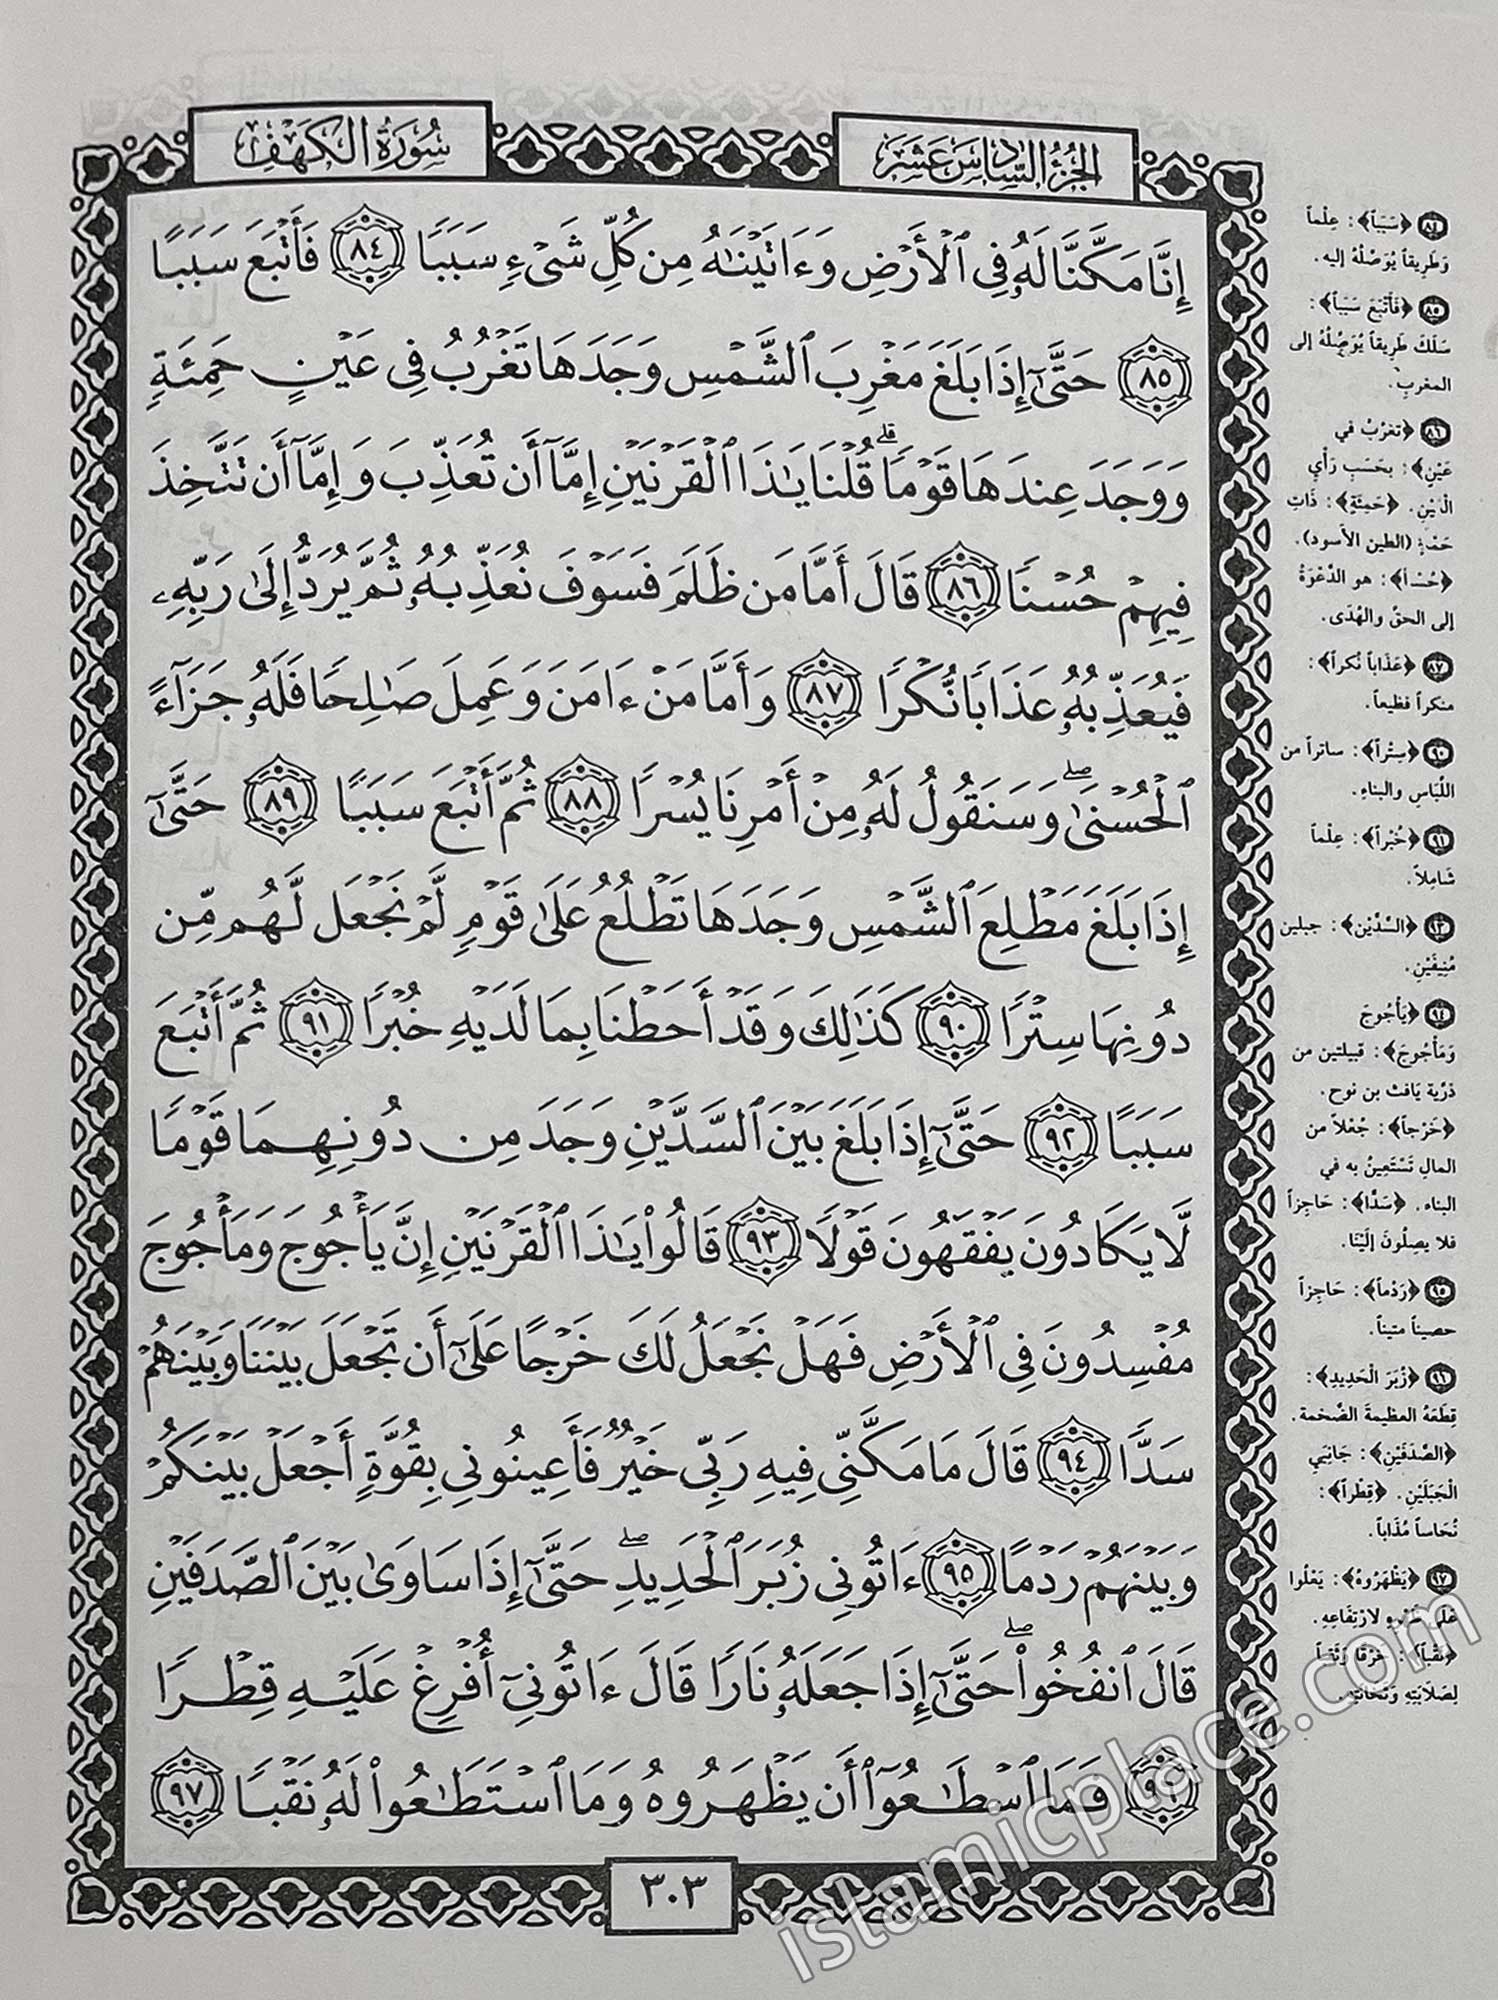 الجزء السادس عشر
سورة الكهف
إِنَّا مَكَّنَّا لَهُۥ فِى ٱلْأَرْضِ وَءَاتَيْنَـٰهُ مِن كُلِّ شَىْءٍ سَبَبًا ٨٤ فَأَتْبَعَ سَبَبًا
٨٥ حَتَّىٰٓ إِذَا بَلَغَ مَغْرِبَ ٱلشَّمْسِ وَجَدَهَا تَغْرُبُ فِى عَيْنٍ حَمِئَةٍ
وَوَجَدَ عِندَهَا قَوْمًا ۗ قُلْنَا يَـٰذَا ٱلْقَرْنَيْنِ إِمَّآ أَن تُعَذِّبَ وَإِمَّآ أَن تَتَّخِذَ
فِيهِمْ حُسْنًا ٨٦ قَالَ أَمَّا مَن ظَلَمَ فَسَوْفَ نُعَذِّبُهُۥ ثُمَّ يُرَدُّ إِلَىٰ رَبِّهِۦ
فَيُعَذِّبُهُۥ عَذَابًا نُّكْرًا ٨٧ وَأَمَّا مَنْ ءَامَنَ وَعَمِلَ صَـٰلِحًا فَلَهُۥ جَزَآءً
ٱلْحُسْنَىٰ ۖ وَسَنَقُولُ لَهُۥ مِنْ أَمْرِنَا يُسْرًا ٨٨ ثُمَّ أَتْبَعَ سَبَبًا ٨٩ حَتَّىٰٓ
إِذَا بَلَغَ مَطْلِعَ ٱلشَّمْسِ وَجَدَهَا تَطْلُعُ عَلَىٰ قَوْمٍ لَّمْ نَجْعَل لَّهُم مِّن
دُونِهَا سِتْرًا ٩٠ كَذَٰلِكَ وَقَدْ أَحَطْنَا بِمَا لَدَيْهِ خُبْرًا ٩١ ثُمَّ أَتْبَعَ
سَبَبًا ٩٢ حَتَّىٰٓ إِذَا بَلَغَ بَيْنَ ٱلسَّدَّيْنِ وَجَدَ مِن دُونِهِمَا قَوْمًا
لَّا يَكَادُونَ يَفْقَهُونَ قَوْلًا ٩٣ قَالُوا۟ يَـٰذَا ٱلْقَرْنَيْنِ إِنَّ يَأْجُوجَ وَمَأْجُوجَ
مُفْسِدُونَ فِى ٱلْأَرْضِ فَهَلْ نَجْعَلُ لَكَ خَرْجًا عَلَىٰٓ أَن تَجْعَلَ بَيْنَنَا وَبَيْنَهُمْ
سَدًّا ٩٤ قَالَ مَا مَكَّنِّى فِيهِ رَبِّى خَيْرٌ فَأَعِينُونِى بِقُوَّةٍ أَجْعَلْ بَيْنَكُمْ
وَبَيْنَهُمْ رَدْمًا ٩٥ ءَاتُونِى زُبَرَ ٱلْحَدِيدِ ۖ حَتَّىٰٓ إِذَا سَاوَىٰ بَيْنَ ٱلصَّدَفَيْنِ
قَالَ ٱنفُخُوا۟ ۖ حَتَّىٰٓ إِذَا جَعَلَهُۥ نَارًا قَالَ ءَاتُونِىٓ أُفْرِغْ عَلَيْهِ قِطْرًا
٩٦ فَمَا ٱسْطَـٰعُوٓا۟ أَن يَظْهَرُوهُ وَمَا ٱسْتَطَـٰعُوا۟ لَهُۥ نَقْبًا ٩٧
٣٠٣
٨٤ ﴿سَبَباً﴾: عِلْماً
وَطَرِيقاً يُوَصِّلُهُ إليه.
٨٥ ﴿فَأَتْبَعَ سَبَباً﴾:
سَلَكَ طَرِيقاً يُوَصِّلُهُ إلى
المغرب.
٨٦ ﴿تَغْرُبُ في
عَيْنٍ﴾: بِحَسَبِ رَأْيِ
العَيْنِ. ﴿حَمِئَةٍ﴾: ذَاتِ
حَمْأَةٍ (الطين الأسود).
﴿حُسْناً﴾: هو الدَّعْوَةُ
إلى الحقِّ والهُدَى.
٨٧ ﴿عَذَاباً نُكراً﴾:
منكراً فظيعاً.
٩٠ ﴿سِتْراً﴾: ساتراً من
اللِّبَاسِ والبناءِ.
٩١ ﴿خُبْراً﴾: عِلْماً
شَامِلاً.
٩٣ ﴿السَّدَّيْنِ﴾: جبلين
مُنِيفَيْنِ.
٩٤ ﴿يَأْجُوجَ
وَمَأْجُوجَ﴾: قبيلتين من
ذرّية يَافث بن نوح.
﴿خَرْجاً﴾: جُعْلاً من
المالِ تَسْتَعِينُ به في
البناء. ﴿سَدّاً﴾: حَاجِزاً
فلا يصِلُونَ إلَيْنَا.
٩٥ ﴿رَدْماً﴾: حَاجِزاً
حصيناً متيناً.
٩٦ ﴿زُبَرَ الْحَدِيدِ﴾:
قِطَعَهُ العظيمةَ الضَّخمة.
﴿الصَّدَفَيْنِ﴾: جَانِبَيِ
الْجَبَلَيْنِ. ﴿قِطْراً﴾:
نُحَاساً مُذَاباً.
٩٧ ﴿يَظْهَرُوهُ﴾: يَعْلُوا
عَلَى ظَهْرِهِ لارْتِفَاعِهِ.
﴿نَقْباً﴾: خَرْقاً وَثَقْباً
لِصَلَابَتِهِ وَثَخَانَتِهِ.
islamicplace.com